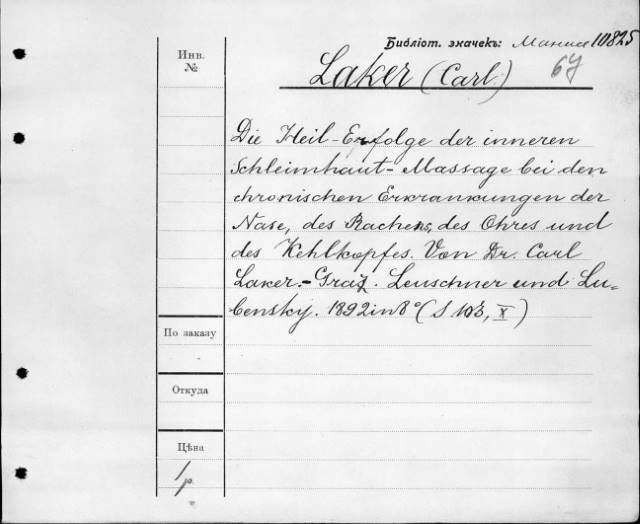 Библіот. значекъ: 10825
Инв.
№
Laker (Carl)
Die Heil-Erfolge der inneren
Schleimhaut-Massage bei den
chronischen Erkrankungen der
Nase, des Rachens, des Ohres und
des Kehlkopfes. Von Dr. Carl
Laker.-Graz. Leuschner und Lu-
bensky. 1892 in 8° (S 103, X)
По заказу
Откуда
Цѣна
1 р.